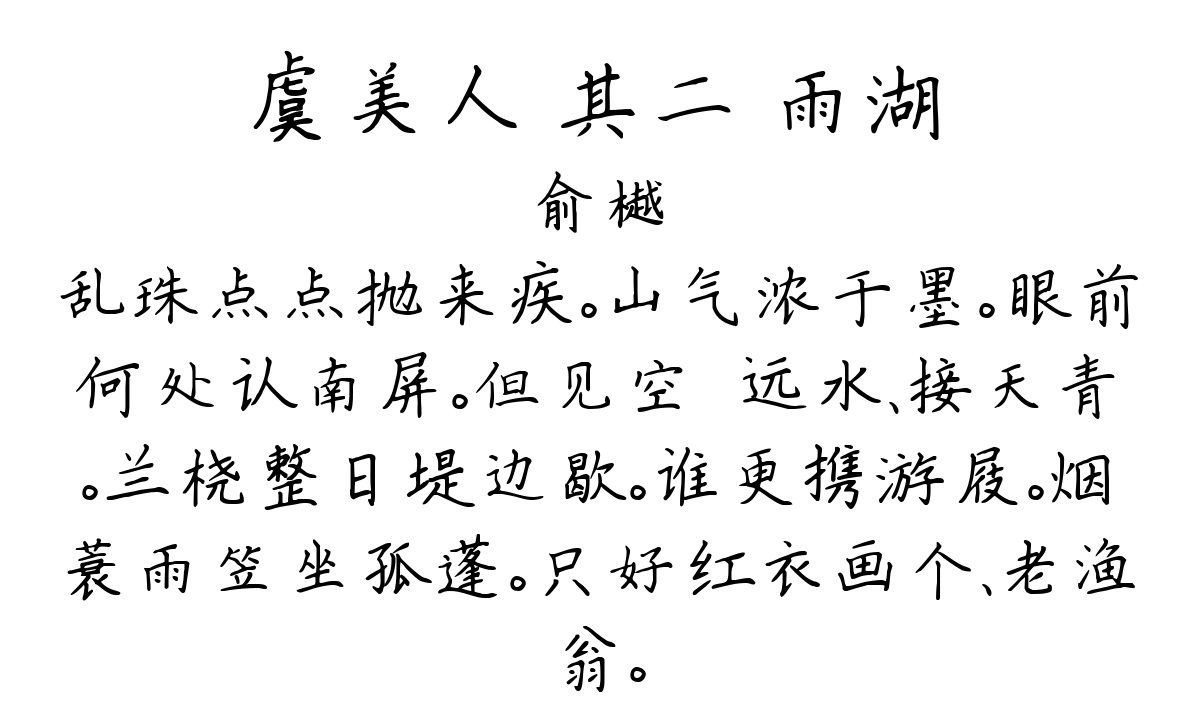 虞美人 其二 雨湖
俞樾
乱珠点点抛来疾。山气浓于墨。眼前
何处认南屏。但见空 远水、接天青
。兰桡整日堤边歇。谁更携游屐。烟
蓑雨笠坐孤蓬。只好红衣画个、老渔
翁。